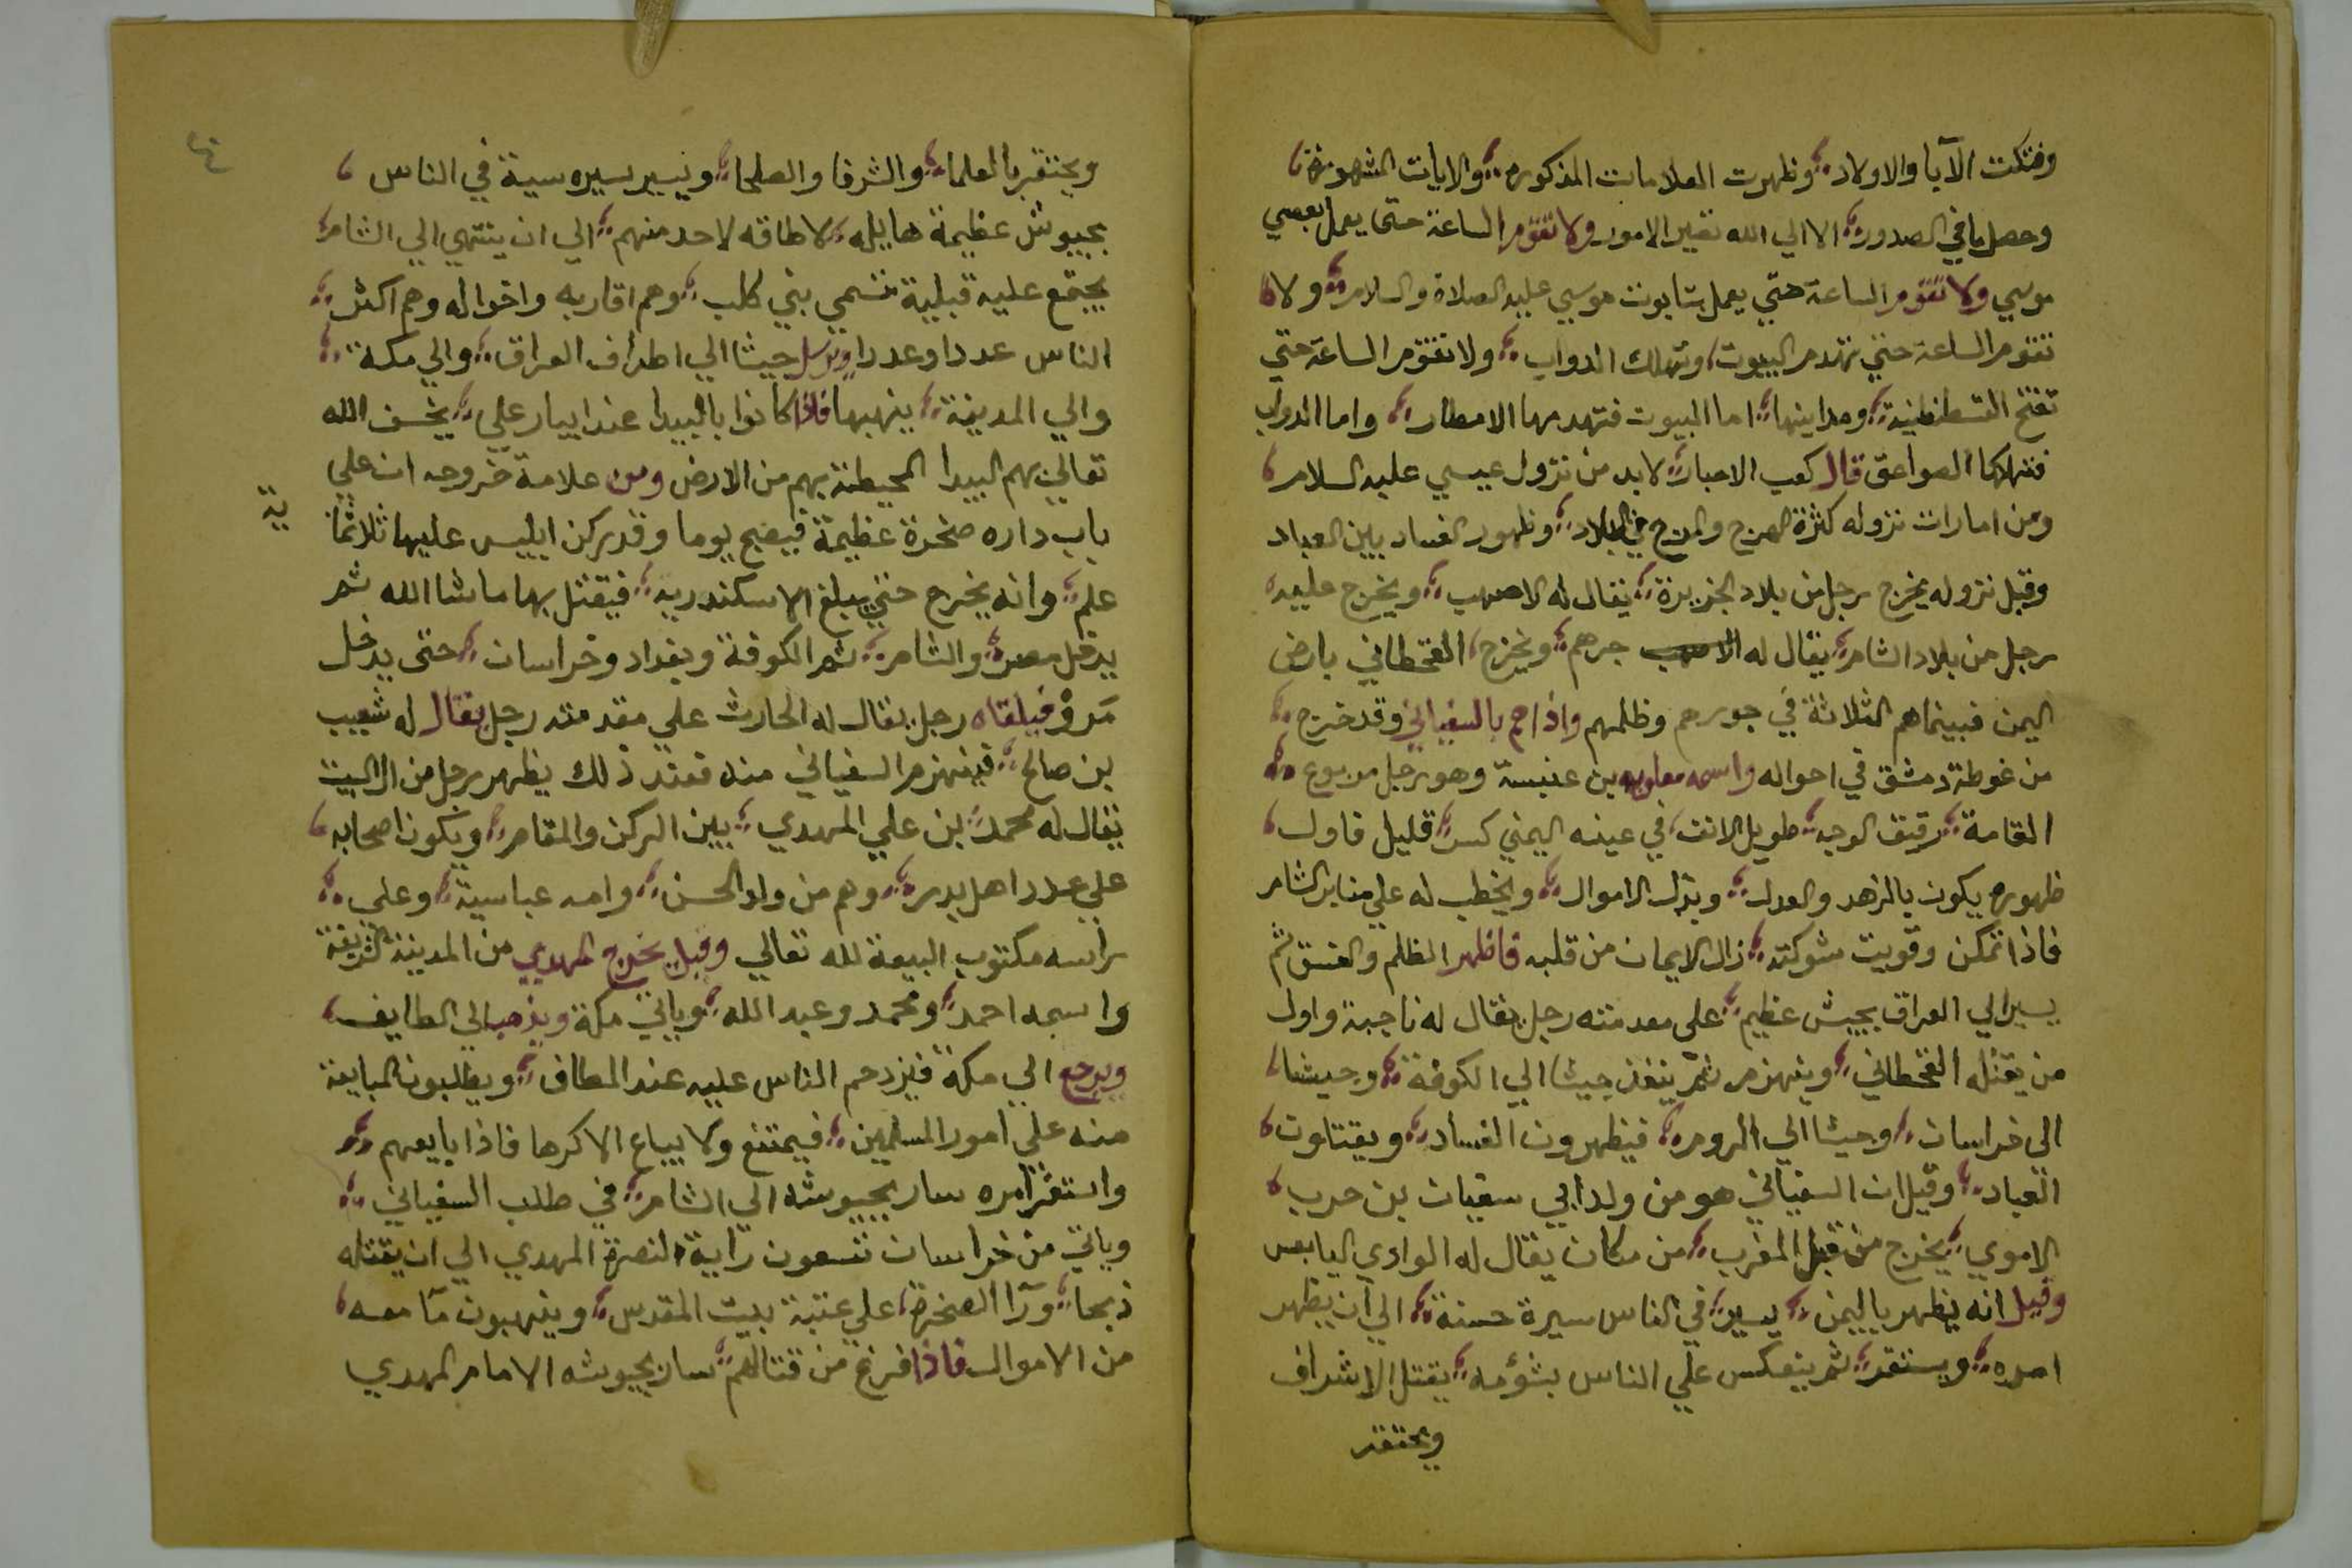 وفتكت الآبا والاولاد وظهرت العلامات المذكوره والايات المشهورة
وحصل ما في الصدور الا الي الله تصير الامور ولا تقوم الساعة حتى يعمل بعصي
موسي ولا تقوم الساعة حتي يعمل بتابوت موسي عليه الصلاة والسلام ولا
تقوم الساعة حتي تهدم البيوت وتهلك الدواب ولا تقوم الساعة حتي
تفتح القسطنطنية ومداينها اما البيوت فتهدمها الامطار واما الدواب
فتهلكها الصواعق قال كعب الاحبار لا بد من نزول عيسي عليه السلام
ومن امارات نزوله كثرة الهرج والمرج في البلاد وظهور الفساد بين العباد
وقبل نزوله يخرج رجل من بلاد الجزيرة يقال له الاصهب ويخرج عليه
رجل من بلاد الشام يقال له جرهم ويخرج القحطاني بارض
اليمن فبينما هم الثلاثة في جورهم وظلمهم واذا هم بالسفياني وقد خرج
من غوطة دمشق في احواله واسمه معاويه بن عنبسة وهو رجل مربوع
القامة رقيق الوجه طويل الانف في عينه اليمني كسر قليل فاول
ظهوره يكون بالزهد والعدل وبذل الاموال ويخطب له علي منابر الشام
فاذا تمكن وقويت شوكته زال الايمان من قلبه فاظهر الظلم والفسق ثم
يسير الي العراق بجيش عظيم على مقدمته رجل يقال له ناجية واول
من يقتله القحطاني وينهزم ثم ينفذ جيشا الي الكوفة وجيشا
الى خراسان وجيشا الي الروم فيظهرون الفساد ويقتلون
العباد وقيل ان السفياني هو من ولد ابي سفيان بن حرب
الاموي يخرج من قبل المغرب من مكان يقال له الوادي اليابس
وقيل انه يظهر باليمن يسير في الناس سيرة حسنة الي ان يظهر
امره ويستقر ثم ينعكس علي الناس بشؤمه يقتل الاشراف
ويحتقر
٤
ويحتقر بالعلماء والشرفا والصلحا ويسير سيره سية في الناس
بجيوش عظيمة هايله لا طاقه لاحد منهم الي ان ينتهي الي الشام
يجتمع عليه قبيلية تسمي بني كلب وهم اقاربه واخواله وهم اكثر
الناس عددا وعددا ويرسل جيشا الي اطراف العراق والي مكة
والي المدينة ينهبها فاذا كانوا بالبيدا عند ابيار علي يخسف الله
تعالي بهم البيدا المحيطة بهم من الارض ومن علامة خروجه ان علي
باب داره صخرة عظيمة فيصبح يوما وقد ركن ابليس عليها ثلاثماية
علم وانه يخرج حتي يبلغ الاسكندريه فيقتل بها ما شا الله ثم
يدخل مصر والشام ثم الكوفة وبغداد وخراسان حتى يدخل
مَرو فيلقاه رجل يقال له الحارث علي مقدمته رجل يقال له شعيب
بن صالح فينهزم السفياني منه فعند ذلك يظهر رجل من ال البيت
يقال له محمد بن علي المهدي بين الركن والمقام ويكون اصحابه
علي عدد اهل بدر وهم من ولد الحسن وامه عباسية وعلي
راسه مكتوب البيعة لله تعالي وقيل يخرج المهدي من المدينة الشريفة
واسمه احمد ومحمد وعبد الله وياتي مكة ويذهب الي الطايف
ويرجع الي مكة فيزدحم الناس عليه عند المطاف ويطلبون المبايعة
منه علي امور المسلمين فيمتنع ولا يبايع الا كرها فاذا بايعهم
واستقر امره سار بجيوشه الي الشام في طلب السفياني
وياتي من خراسان تسعون راية لنصرة المهدي الي ان يقتله
ذبحا ورآ الصخرة علي عتبة بيت المقدس وينهبون ما معه
من الاموال فاذا فرغ من قتالهم سار بجيوشه الامام المهدي